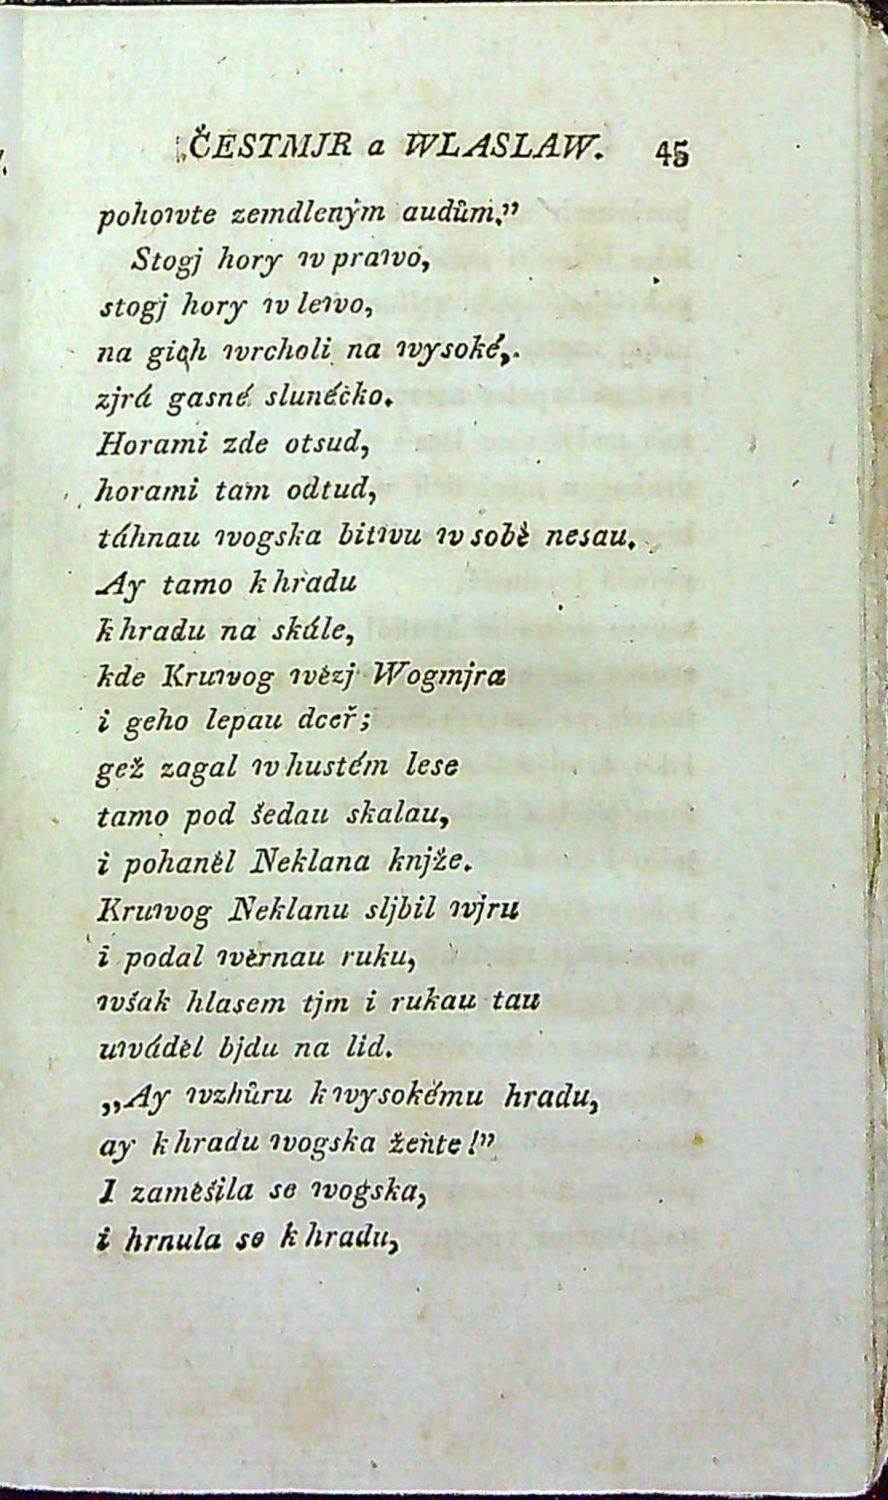 ČESTMJR a WLASLAW. 45
pohowte zemdleným audům.”
Stogj hory w prawo,
stogj hory w lewo,
na gich wrcholi na wysoké,
zjrá gasné slunéčko.
Horami zde otsud,
horami tam odtud,
táhnau wogska bitwu w sobě nesau.
Ay tamo k hradu
k hradu na skále,
kde Kruwog wězj Wogmjra
i geho lepau dceř;
gež zagal w hustém lese
tamo pod šedau skalau,
i pohaněl Neklana knjže.
Kruwog Neklanu sljbil wjru
i podal wěrnau ruku,
však hlasem tjm i rukau tau
uwáděl bjdu na lid.
„Ay wzhůru k wysokému hradu,
ay k hradu wogska žeňte!”
I zaměšila se wogska,
i hrnula se k hradu,